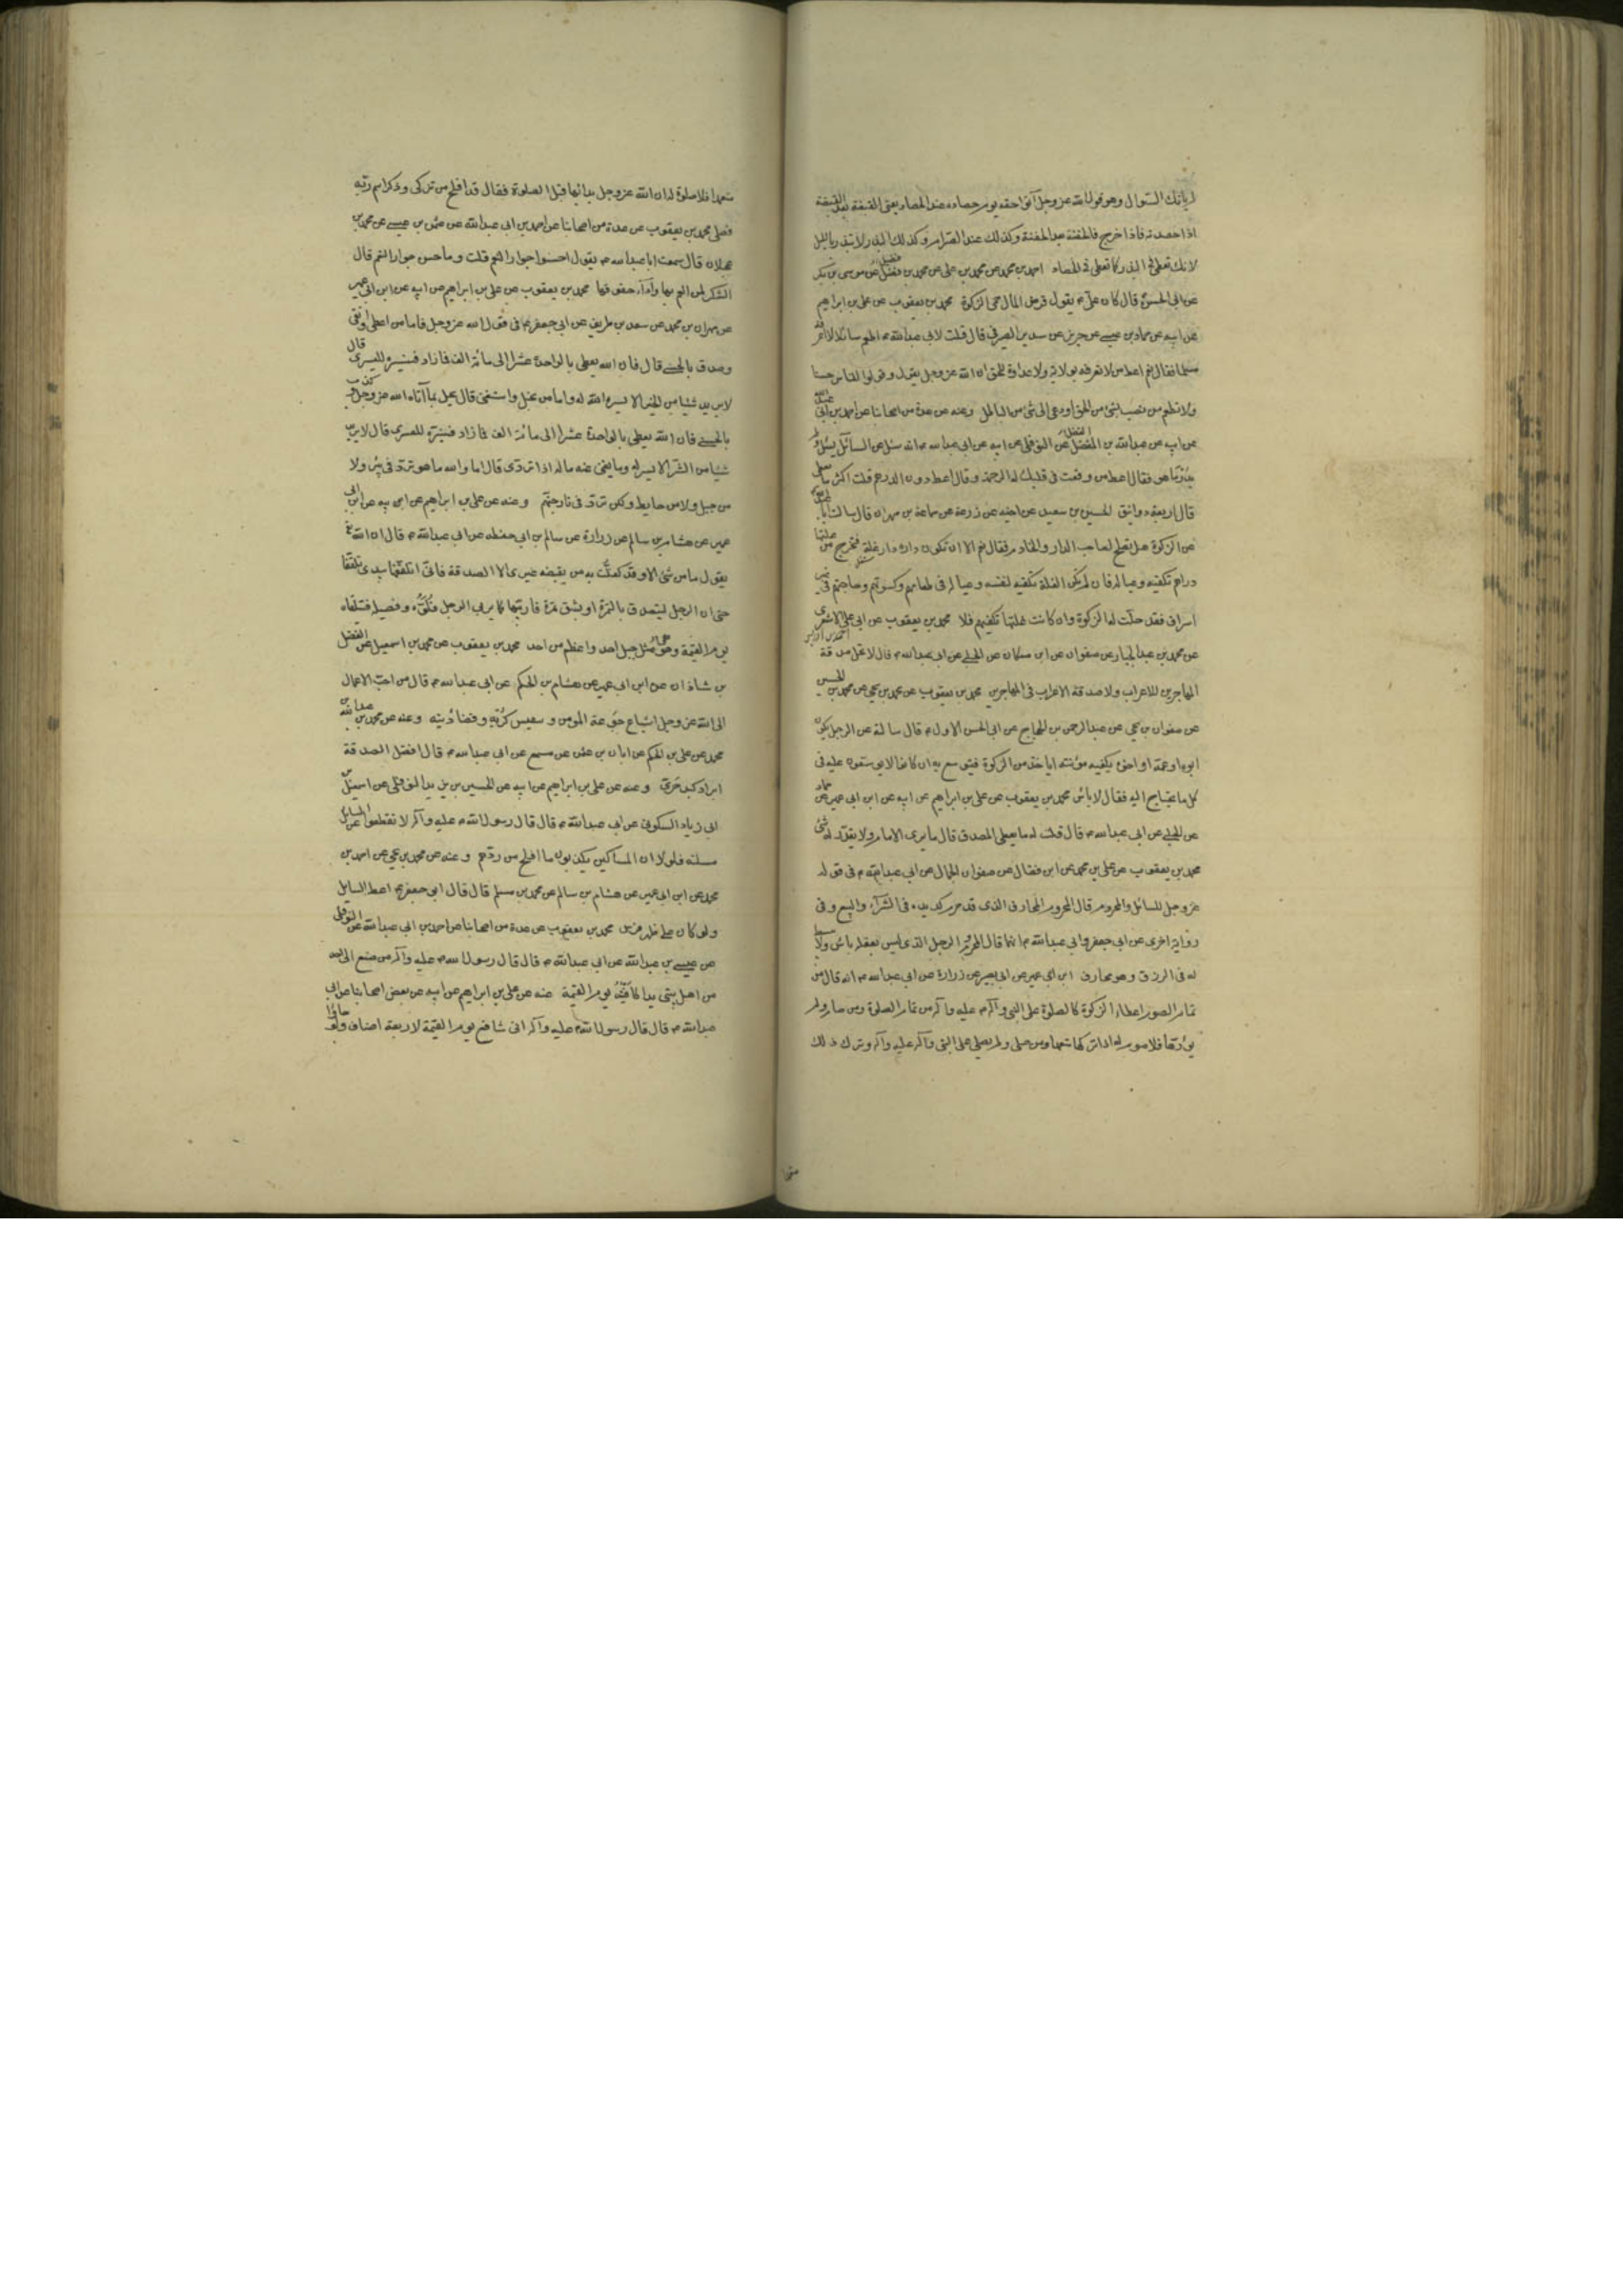 لم ياتك السؤال وهو قول الله عز وجل آتوا حقه يوم حصاده عند الحصاد يعنى القبضة بعد القبضة
اذا حصدته فاذا خرج فالحفنة بعد الحفنة وكذلك عند الصرام وكذلك البذر لا تبذر بالليل
لانك تعطى فى البذر كما تعطى فى الحصاد احمد بن محمد عن محمد بن على عن محمد بن فضيل عن موسى بن بكر
عن ابى الحسن قال كان على يقول قرض المال حمى الزكوة محمد بن يعقوب عن على بن ابراهيم
عن ابيه عن حماد بن عيسى عن حريز عن سدير الصيرفى قال قلت لابى عبدالله اطعم سائلا لا اعرفه
مسلما فقال نعم اعط من لا تعرفه بولاية ولا عداوة للحق ان الله عز وجل يقول وقولوا للناس حسنا
ولا تطعم من نصب لشئ من الحق او دعى الى شئ من الباطل وعنه عن عدة من اصحابنا عن احمد بن ابى عبدالله
عن ابيه عن عبدالله بن الفضل عن النوفلى عن ابيه عن ابى عبدالله انه سئل عن السائل يسئل ولا
يدرى ما هو فقال اعط من وقعت فى قلبك له الرحمة وقال اعط دون الدرهم قلت اكثر ما يعطى
قال اربعة دوانيق الحسين بن سعيد عن اخيه عن زرعة عن سماعة بن مهران قال سالت ابا عبدالله
عن الزكوة هل تصلح لصاحب الدار والخادم فقال نعم الا ان تكون داره دار غلة فيخرج من غلتها
دراهم تكفيه وعياله فان لم تكن الغلة تكفيه لنفسه وعياله فى طعامهم وكسوتهم وحاجتهم فى غير
اسراف فقد حلت له الزكوة وان كانت غلتها تكفيهم فلا محمد بن يعقوب عن ابى على الاشعرى احمد بن ادريس
عن محمد بن عبدالجبار عن صفوان عن ابن مسكان عن الحلبى عن ابى عبدالله قال لا تحل صدقة
المهاجرين للاعراب ولا صدقة الاعراب فى المهاجرين محمد بن يعقوب عن محمد بن يحيى عن محمد بن الحسين
عن صفوان بن يحيى عن عبدالرحمن بن الحجاج عن ابى الحسن الاول قال سالته عن الرجل يكون
ابوه او عمه او اخوه يكفيه مؤنته اياخذ من الزكوة فيتوسع به ان كانوا لا يوسعون عليه فى
كل ما يحتاج اليه فقال لا باس محمد بن يعقوب عن على بن ابراهيم عن ابيه عن ابن ابى عمير عن حماد
عن الحلبى عن ابى عبدالله قال قلت له ما يعطى المصدق قال ما يرى الامام ولا يقدر له شئ
محمد بن يعقوب عن على بن محمد عن ابن فضال عن صفوان الجمال عن ابى عبدالله فى قوله
عز وجل للسائل والمحروم قال المحروم المحارف الذى قد حرم كد يده فى الشرآء والبيع وفى
رواية اخرى عن ابى جعفر وابى عبدالله انهما قال المحروم الرجل الذى ليس بعقله باس ولا يبسط
له فى الرزق وهو محارف ابن ابى عمير عن ابى بصير عن زرارة عن ابى عبدالله انه قال من
تمام الصوم اعطاء الزكوة كالصلوة على النبى وآله عليه وآله من تمام الصلوة ومن صام ولم
يؤدها فلا صوم له اذا تركها متعمدا ومن صلى ولم يصلى على النبى وآله عليه وآله وترك ذلك
متعمدا فلا صلوة له ان الله عز وجل بدا بها قبل الصلوة فقال قد افلح من تزكى وذكر اسم ربه
فصلى محمد بن يعقوب عن عدة من اصحابنا عن احمد بن ابى عبدالله عن عثمن بن عيسى عن محمد بن
عجلان قال سمعت ابا عبدالله يقول احسنوا جوار النعم قلت وما حسن جوار النعم قال
الشكر لمن انعم بها وآداء حقوقها محمد بن يعقوب عن على بن ابراهيم عن ابيه عن ابن ابى عمير
عن مهران بن محمد عن سعد بن طريف عن ابى جعفر فى قول الله عز وجل فاما من اعطى واتقى
وصدق بالحسنى قال فان الله يعطى بالواحدة عشرا الى مائة الف فما زاد فسنيسره لليسرى قال
لا يريد شيئا من الخير الا يسره الله له واما من بخل واستغنى قال بخل بما آتاه الله عز وجل وكذب
بالحسنى فان الله يعطى بالواحدة عشرا الى مائة الف فما زاد فسنيسره للعسرى قال لا يريد
شيئا من الشر الا يسر له وما يغنى عنه ماله اذا تردى قال اما والله ما هو تردى فى بئر ولا
من جبل ولا من حايط ولكن تردى فى نار جهنم وعنه عن على بن ابراهيم عن ابيه عن ابن ابى
عمير عن هشام بن سالم عن زرارة عن سالم بن ابى حفصه عن ابى عبدالله قال ان الله
يقول ما من شئ الا وقد كفلت به من يقبضه غيرى الا الصدقة فانى اتلقفها بيدى تلقفا
حتى ان الرجل ليتصدق بالتمرة او بشق تمرة فاربيها كما يربى الرجل فلوه وفصيله فتلقاه
يوم القيمة وهى مثل جبل احد واعظم من احد محمد بن يعقوب عن محمد بن اسمعيل عن الفضل
بن شاذان عن ابن ابى عمير عن هشام بن الحكم عن ابى عبدالله قال من احب الاعمال
الى الله عز وجل اشباع جوعة المومن وتنفيس كربته وقضاء دينه وعنه عن محمد بن عبدالله
محمد عن على بن الحكم عن ابان بن عثمن عن مسمع عن ابى عبدالله قال افضل الصدقة
ابراد كبد حرى وعنه عن على بن ابراهيم عن ابيه عن الحسين بن يزيد النوفلى عن اسمعيل بن
ابى زياد السكونى عن ابى عبدالله قال قال رسول الله عليه وآله لا تقطعوا على السايل
مسئلته فلولا ان المساكين يكذبون ما افلح من ردهم وعنه عن محمد بن يحيى عن احمد بن
محمد عن ابن ابى عمير عن هشام بن سالم عن محمد بن مسلم قال قال ابو جعفر اعط السايل
ولو كان على ظهر فرس محمد بن يعقوب عن عدة من اصحابنا عن احمد بن ابى عبدالله عن النوفلى
عن عيسى بن عبدالله عن ابى عبدالله قال قال رسول الله عليه وآله من صنع الى احد
من اهل بيتى يدا كافيته يوم القيمة عنه عن على بن ابراهيم عن ابيه عن بعض اصحابنا عن ابى
عبدالله قال قال رسول الله عليه وآله انى شافع يوم القيمة لاربعة اصناف ولو جاؤا